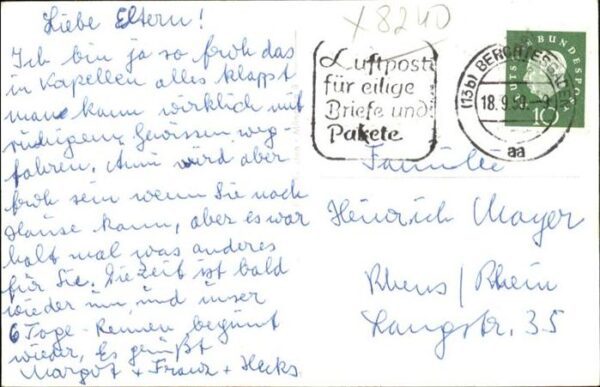 Liebe Eltern!
Ich bin ja so froh das
in Kapellen alles klappt
man kann wirklich mit
ruhigem Gewissen weg-
fahren, Anni wird aber
froh sein wenn Sie nach
Hause kann, aber es war
halt mal was anderes
für Sie. Die Zeit ist bald
wieder um, und unser
6 Tage-Rennen beginnt
wieder. Es grüßt
Margot + Franz +
X 8240
Luftpost
für eilige
Briefe und
Pakete
(13b) BERCHTESGADEN
18.9.
aa
DEUTSCHE BUNDESPOST
10
Familie
Heinrich Mayer
Rhens/Rhein
Langstr. 35